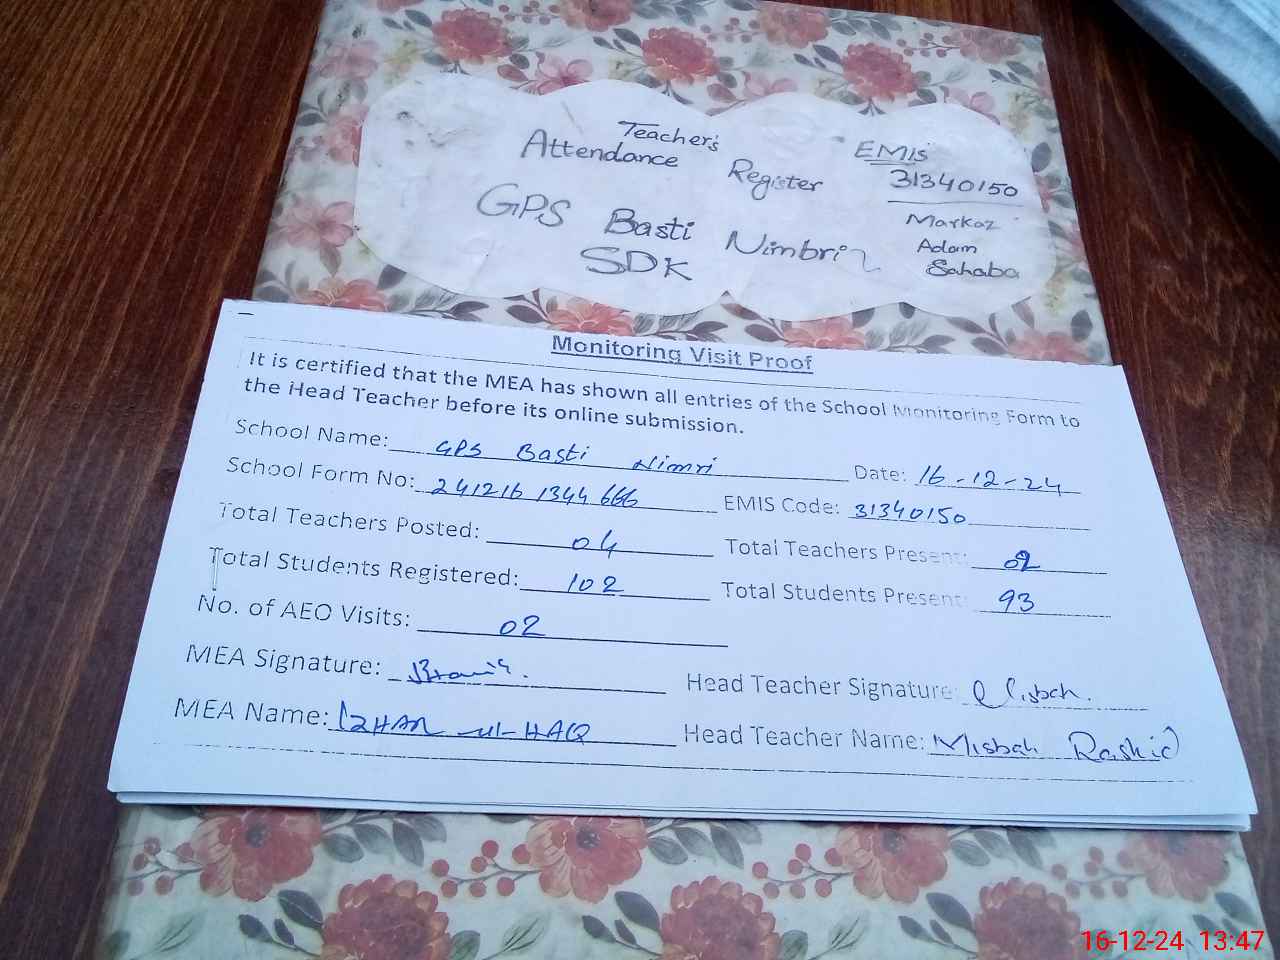 Teacher's
Attendance Register
GPS Basti Nimbri
SDK
EMIS
31340150
Markaz
Adam
Sahaba
Monitoring Visit Proof
It is certified that the MEA has shown all entries of the School Monitoring Form to
the Head Teacher before its online submission.
School Name: GPS Basti Nimri Date: 16-12-24
School Form No: 241216 1344 666 EMIS Code: 31340150
Total Teachers Posted: 04 Total Teachers Present: 02
Total Students Registered: 102 Total Students Present: 93
No. of AEO Visits: 02
MEA Signature: Head Teacher Signature: Misbah.
MEA Name: IZHAR-ul-HAQ Head Teacher Name: Misbah Rashid
16-12-24 13:47